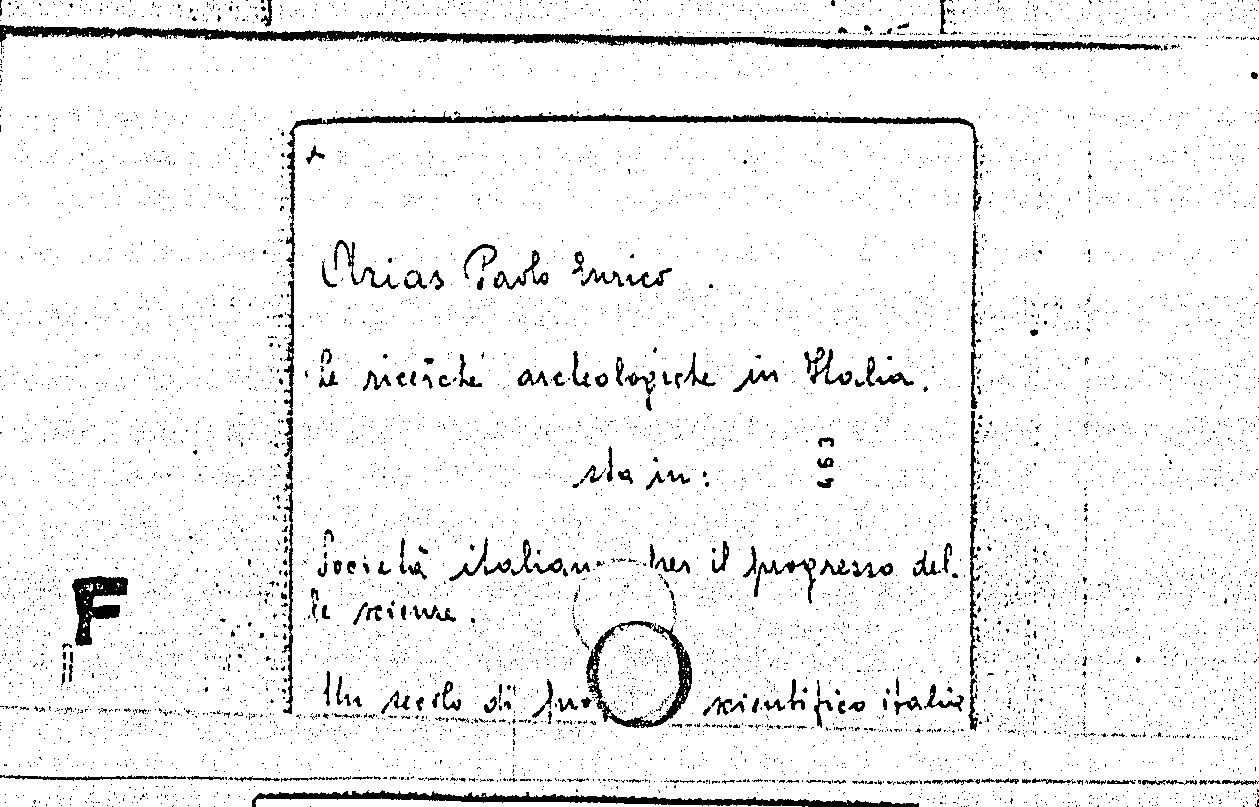 Arias Paolo Enrico.
Le ricerche archeologiche in Italia.
sta in:
463
Società italiana per il progresso del-
le scienze.
Un secolo di pro scientifico italia
F